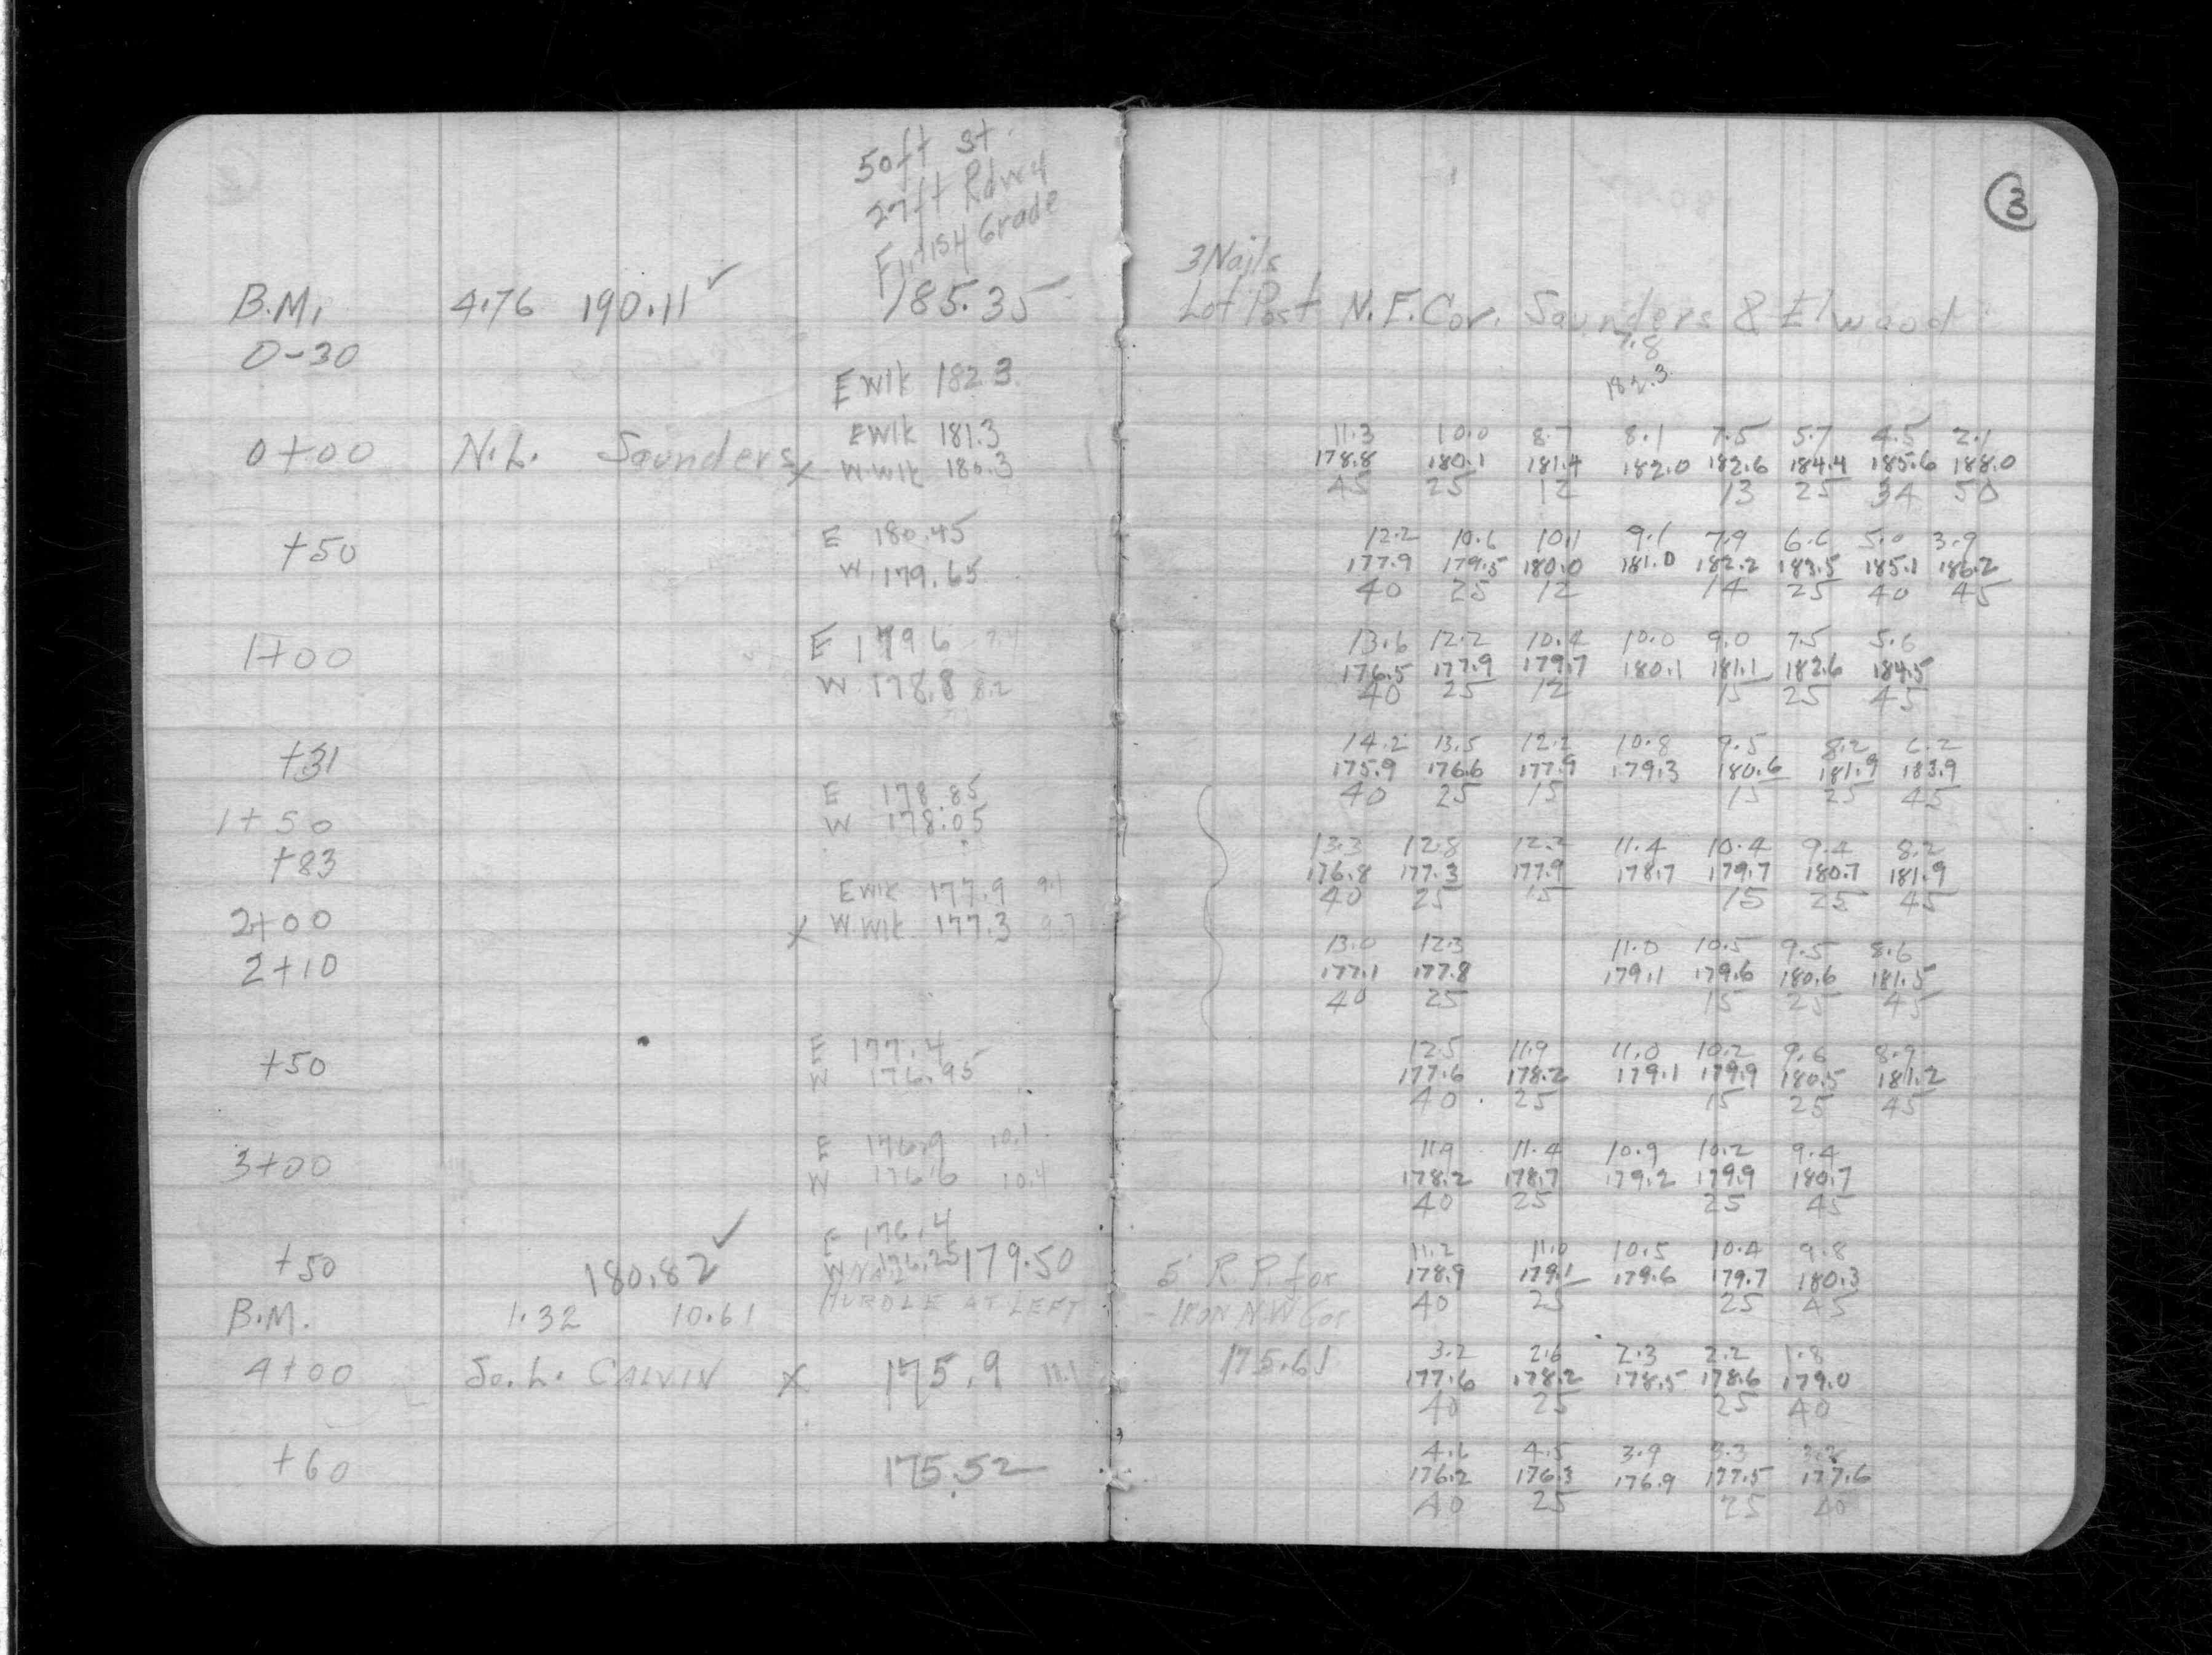 50ft St.
27ft Rdwy
Finish Grade
B.M. 4.76 190.11 ✓ 185.35
0-30
E Wlk 182.3
E Wlk 181.3
0+00 N.L. Saunders x W. Wlk 180.3
+50 E 180.45
W. 179.65
1+00 E 179.6
W. 178.8 8.2
+31
E 178.85
1+50 W 178.05
+83
E Wlk 177.9 9.1
2+00 x W. Wlk 177.3 9.7
2+10
E 177.4
+50 W 176.95
E 176.9 10.1
3+00 W 176.6 10.4
E 176.4
+50 180.82 ✓ W 176.25 179.50
B.M. 1.32 10.61 HURDLE AT LEFT
4+00 So. L. CALVIN x 175.9 11.1
+60 175.52
3
3 Nails
Lot Post N.E. Cor. Saunders & Elwood
7.8
182.3
11.3 10.0 8.7 8.1 7.5 5.7 4.5 2.1
178.8 180.1 181.4 182.0 182.6 184.4 185.6 188.0
45 25 12 13 25 34 50
12.2 10.6 10.1 9.1 7.9 6.6 5.0 3.9
177.9 179.5 180.0 181.0 182.2 183.5 185.1 186.2
40 25 12 14 25 40 45
13.6 12.2 10.4 10.0 9.0 7.5 5.6
176.5 177.9 179.7 180.1 181.1 182.6 184.5
40 25 12 15 25 45
14.2 13.5 12.2 10.8 9.5 8.2 6.2
175.9 176.6 177.9 179.3 180.6 181.9 183.9
40 25 15 15 25 45
13.3 12.8 12.2 11.4 10.4 9.4 8.2
176.8 177.3 177.9 178.7 179.7 180.7 181.9
40 25 15 15 25 45
13.0 12.3 11.0 10.5 9.5 8.6
177.1 177.8 179.1 179.6 180.6 181.5
40 25 15 25 45
12.5 11.9 11.0 10.2 9.6 8.9
177.6 178.2 179.1 179.9 180.5 181.2
40 25 15 25 45
11.9 11.4 10.9 10.2 9.4
178.2 178.7 179.2 179.9 180.7
40 25 25 45
11.2 11.0 10.5 10.4 9.8
5' R.P. for 178.9 179.1 179.6 179.7 180.3
- IRON N.W Cor 40 25 25 45
3.2 2.6 2.3 2.2 1.8
175.61 177.6 178.2 178.5 178.6 179.0
40 25 25 40
4.6 4.5 3.9 3.3 3.2
176.2 176.3 176.9 177.5 177.6
40 25 25 40